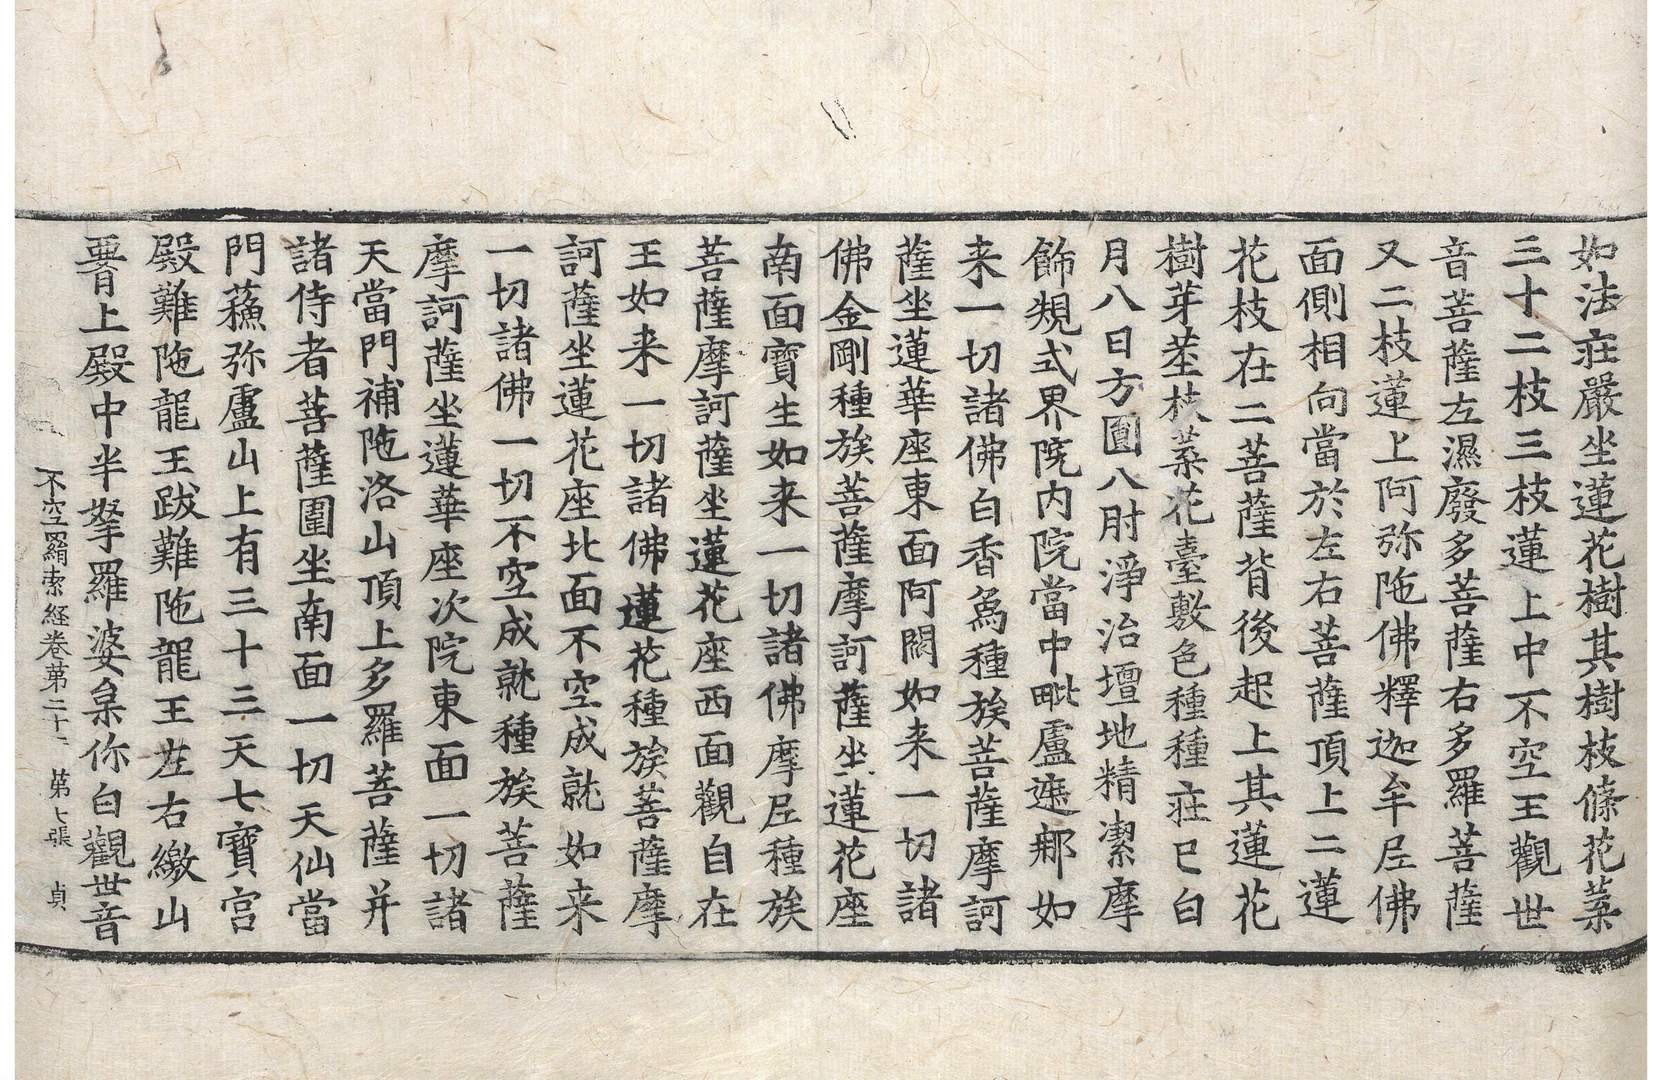 如法莊嚴坐蓮花樹其樹枝條花葉
三十二枝三枝蓮上中不空王觀世
音菩薩左濕廢多菩薩右多羅菩薩
又二枝蓮上阿弥陁佛釋迦牟尼佛
面側相向當於左右菩薩頂上二蓮
花枝在二菩薩背後起上其蓮花
樹芽莖枝葉花臺敷色種種莊已白
月八日方圓八肘淨治壇地精潔摩
飾䂓式界院內院當中毗盧遮那如
来一切諸佛白香爲種族菩薩摩訶
薩坐蓮華座東面阿閦如来一切諸
佛金剛種族菩薩摩訶薩坐蓮花座
南面寶生如来一切諸佛摩尼種族
菩薩摩訶薩坐蓮花座西面觀自在
王如来一切諸佛蓮花種族菩薩摩
訶薩坐蓮花座北面不空成就如来
一切諸佛一切不空成就種族菩薩
摩訶薩坐蓮華座次院東面一切諸
天當門補陁洛山頂上多羅菩薩并
諸侍者菩薩圍坐南面一切天仙當
門蘓弥盧山上有三十三天七寶宮
殿難陁龍王跋難陁龍王左右繳山
罯上殿中半拏羅婆枲你白觀世音
不空羂索経卷第二十一 第七張 貞